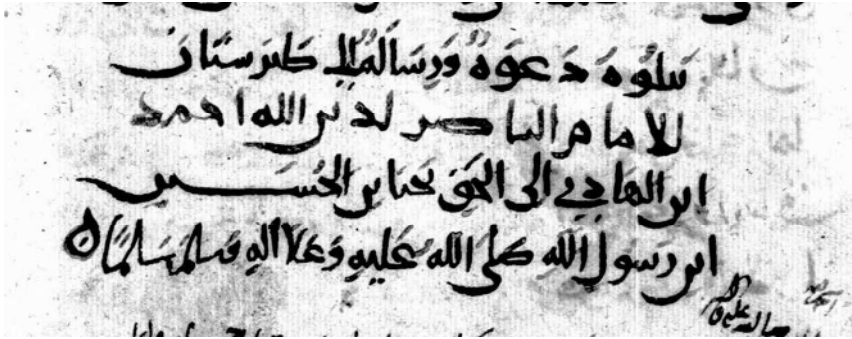 يتلوه دعوة ورسالة إلى طبرستان
للامام الناصر لدين الله احمد
ابن الهادي الى الحق يحيا بن الحسين
ابن رسول الله صلى الله عليه وعلا آله وسلم تسليمًا